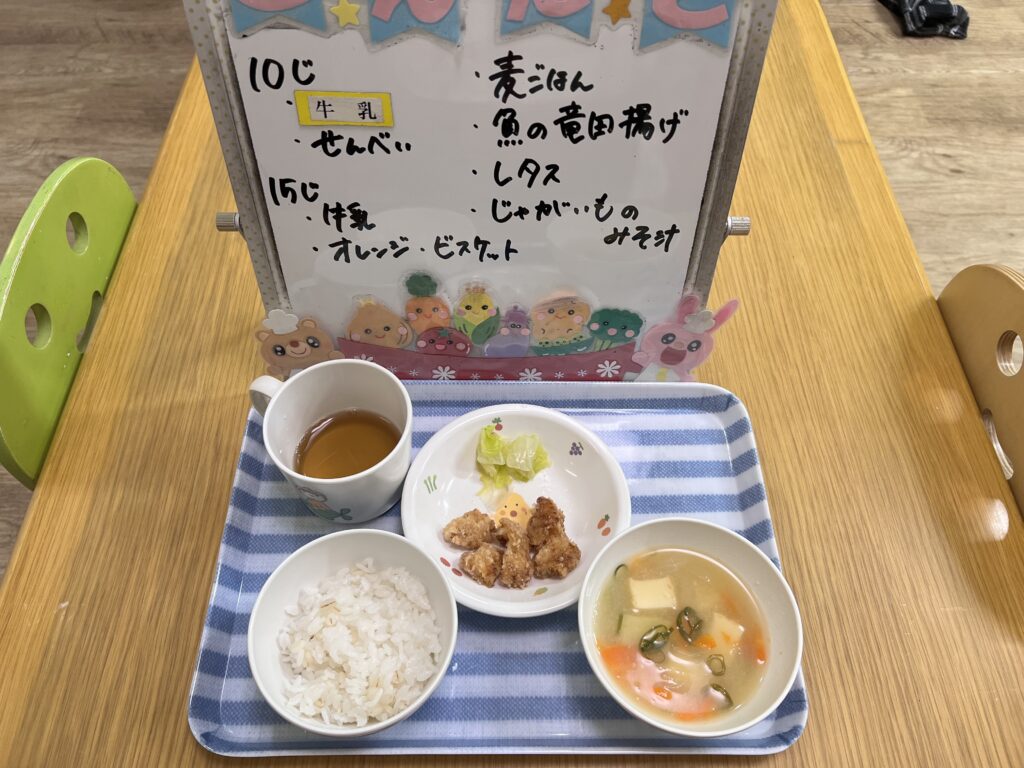 こんだて
10じ
・牛乳
・せんべい
15じ
・牛乳
・オレンジ・ビスケット
・麦ごはん
・魚の竜田揚げ
・レタス
・じゃがいもの
みそ汁